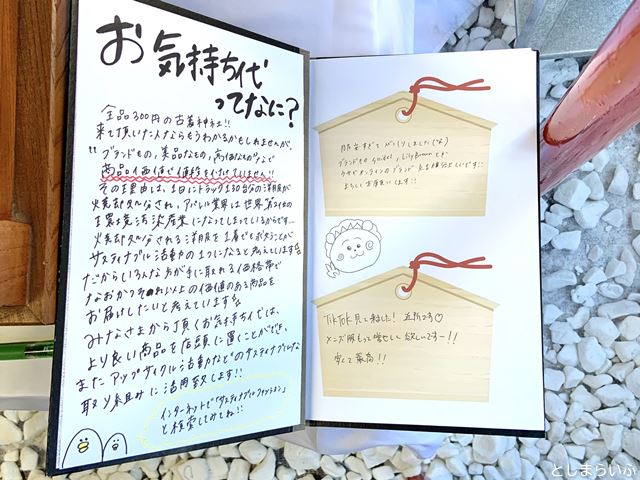 お気持ち代
ってなに?
全品300円の古着神社!!
来て頂いた人ならもうわかるかもしれませんが、
"ブランドもの、美品なもの、高価なもの"などで
商品価値で値段をつけていません!!
その理由は、1日にトラック130台分の洋服が
焼却処分され、アパレル業界は世界第2位の
環境汚染産業になってしまっているからです…
焼却処分される洋服を1着でも減らすことが
サスティナブル活動の1つになると考えています
だからいろんな方が手に取れる価格帯で
なおかつそれ以上の価値のある商品を
お届けしたいと考えています
みなさまから頂くお気持ち代は、
より良い商品を店頭に置くことができ、
またアップサイクル活動などのサスティナブルな
取り組みに活用致します!!
インターネットで「サスティナブルファッション」
と検索してみてね!!
ブランドもの
LilyBrown
よろしくお願いします!!
TikTok見て来ました! 近所です♡
メンズ服もっと増やして欲しいですー!!
安くて最高!!
としまらいふ